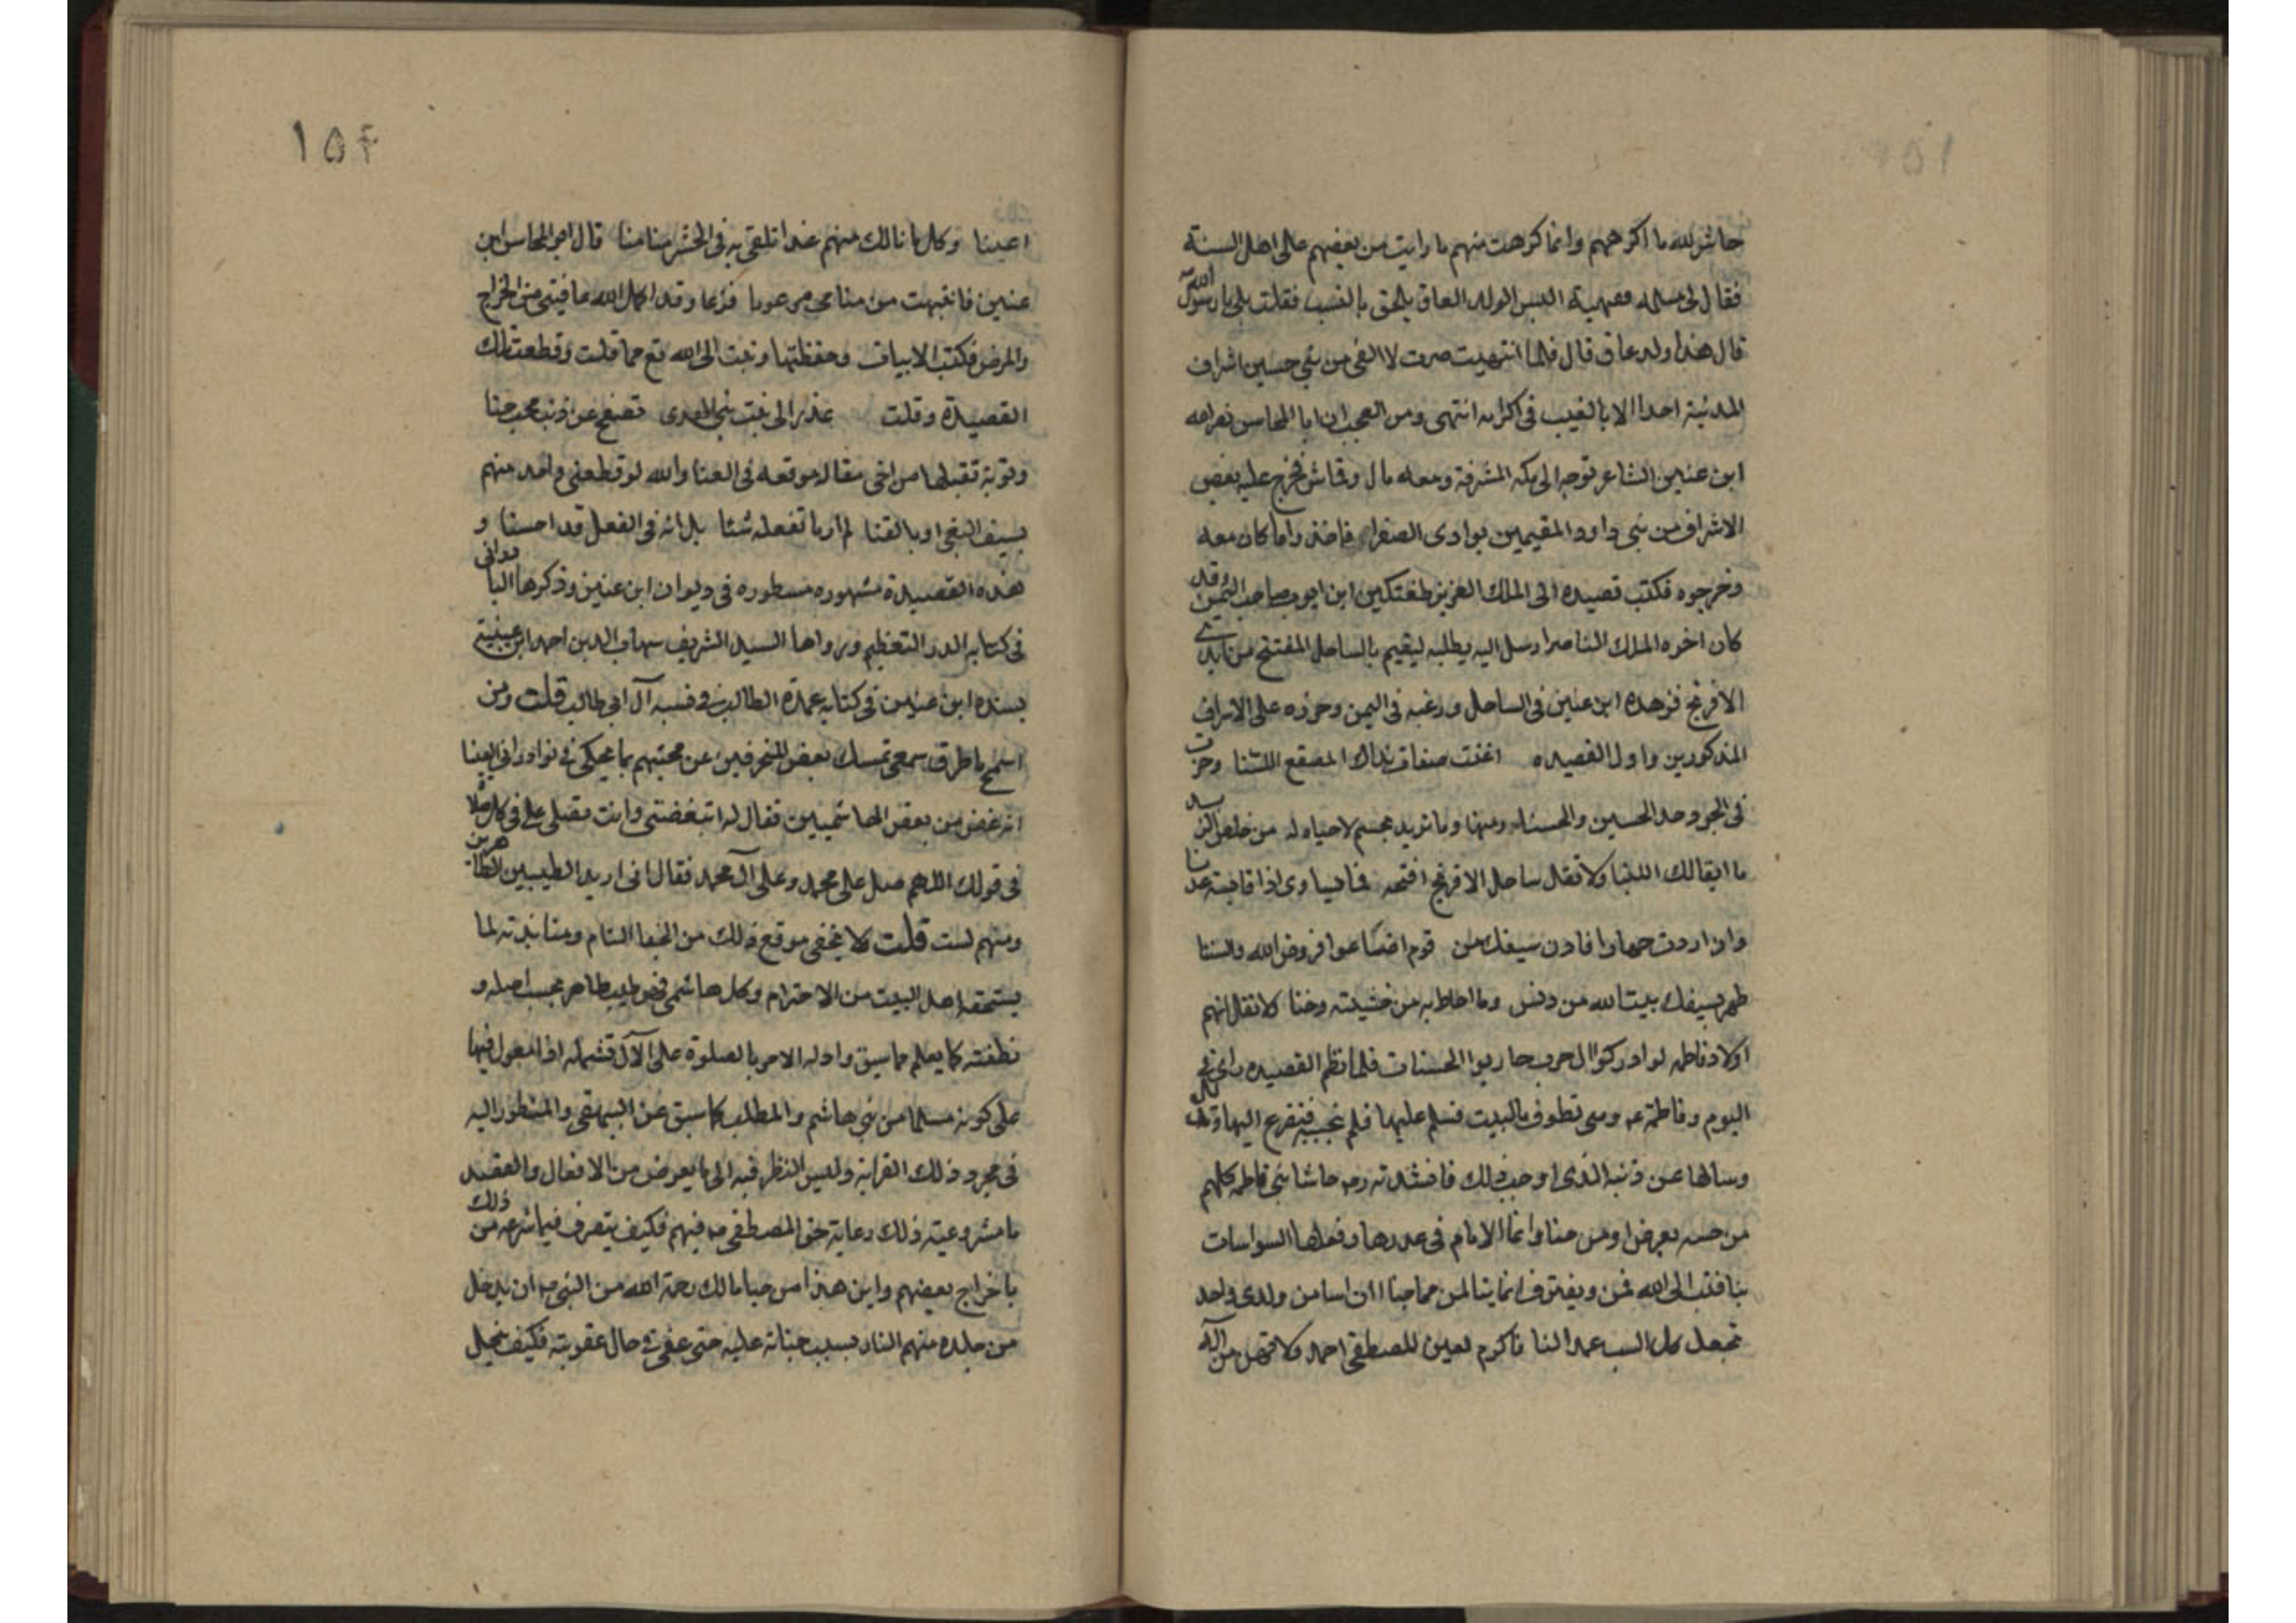 حاش لله ما اكرههم وانما كرهت منهم ما رايت من تعصبهم على اهل السنة
فقال لى مسئلة فقهية اليس الولد العاق يلحق بالنسب فقلت بلى يا رسول الله
قال هذا ولد عاق قال فلما انتهيت صرت لا القى من بنى حسين اشراف
المدنية احدا الا بالغيب فى اكرامه انتهى ومن العجب ان ابا المحاسن نصرالله
ابن عنين الشاعر توجه الى مكه المشرفة ومعه مال وقماش فخرج عليه بعض
الاشراف من بنى داود المقيمين بوادى الصفراء فاخذوا ما كان معه
وخرجوه فكتب قصيده الى الملك العزيز طغتكين ابن ايوب صاحب اليمن وقد
كان اخوه الملك الناصر ارسل اليه يطلبه ليقيم بالساحل المفتتح من ايدى
الافرنج فزهده ابن عنين فى الساحل ورغبه فى اليمن وحرضه على الاشراف
المذكورين واول القصيده اغنت صفات نداك المصقع اللسنا وحزت
فى الجود حد الحسن والحسنا ومنها وما تريد بجسم لاحياه له من خلص الزبد
ما ابقا لك اللبنا ولا تقل ساحل الافرنج افتحه فما يساوى اذا قايسته عدنا
وان اردت جهادا فادن سيفك من قوم اضاعوا فروض الله والسننا
طهر بسيفك بيت الله من دنس وما احاط به من خسيسته وخنا لا تقل انهم
اولاد فاطمه لو ادركوا ال حرب حاربوا الحسنا فلما نظم القصيده راى فى
اليوم وفاطمة عم وهى تطوف بالبيت فسلم عليها فلم تجبه فتضرع اليها وتذلل
وسالها عن ذنبه الذى اوجب ذلك فانشدته رضه حاشا بنى فاطمه كلهم
من خسه تعرض او من خنا وانما الايام فى غدرها وفعلها السوء اسات
بنا فتب الى الله فمن يقترف اثما بنا لمن مما جنا ان اسا من ولدى واحد
تجعل كل السب عمدا لنا فاكرم لعين المصطفى احمد ولا تهن من آله
١٥٤
اعينا وكل ما نالك منهم غدا تلقى به فى الحشر منا منا قال ابو المحاسن ابن
عنين فانتبهت من منامى مرعوبا فزعا وقد اكمل الله عافيتى من الخراج
والمرض فكتبت الابيات وحفظتها وتبت الى الله تع مما قلت وقطعت تلك
القصيدة وقلت عذرا الى بنت نبى الهدى تصفح عن ذنب محب جنا
وتوبة تقبلها من اخى مقاله موقعه فى العنا والله لو قطعنى واحد منهم
بسيف البغى او بالقنا لم ار ما تفعله شئا بل انه فى الفعل قد احسنا و
هذه القصيدة مشهوره مسطوره فى ديوان ابن عنين وذكرها البا درانى
فى كتابه الدر النظيم ورواها السيد الشريف شهاب الدين احمد ابن عنبة
بسنده ابن عنين فى كتابه عمدة الطالب فى نسب آل ابى طالب قلت ومن
اسمج ما طرق سمعى تمسك بعض المنحرفين عن محبتهم بما يحكى فى نوادر ابى العينا
انه غض من بعض الهاشميين فقال له اتبغضنى وانت تصلى على فى كل صلاه
فى قولك اللهم صل على محمد وعلى آل محمد فقال انى اريد الطيبين الطاهرين
ومنهم لست قلت ولا يخفى موقع ذلك من الجفا التام ومنابذته لما
يستحقه اهل البيت من الاحترام وكل هاشمى فهو طيب طاهر بحسب اصله و
نطفته كما يعلم مما سبق وادله الامر بالصلوة على الآل تشمله اذ المعول فيها
على كونه مسلما من بنى هاشم والمطلب كما سبق عن البيهقى والمنظور اليه
فى مجرد ذلك القرابة وليس النظر فيه الى ما يعرض من الافعال والقصد
ما مشروعيته ذلك رعاية حق المصطفى ص فيهم فكيف يتصرف فيما شرعه من ذلك
باخراج بعضهم واين هذا من حيا مالك رحمة الله من النبى ص ان يدخل
من جلده منهم النار بسبب جنايته عليه حتى عفى فى حال عقوبته فكيف يخيل